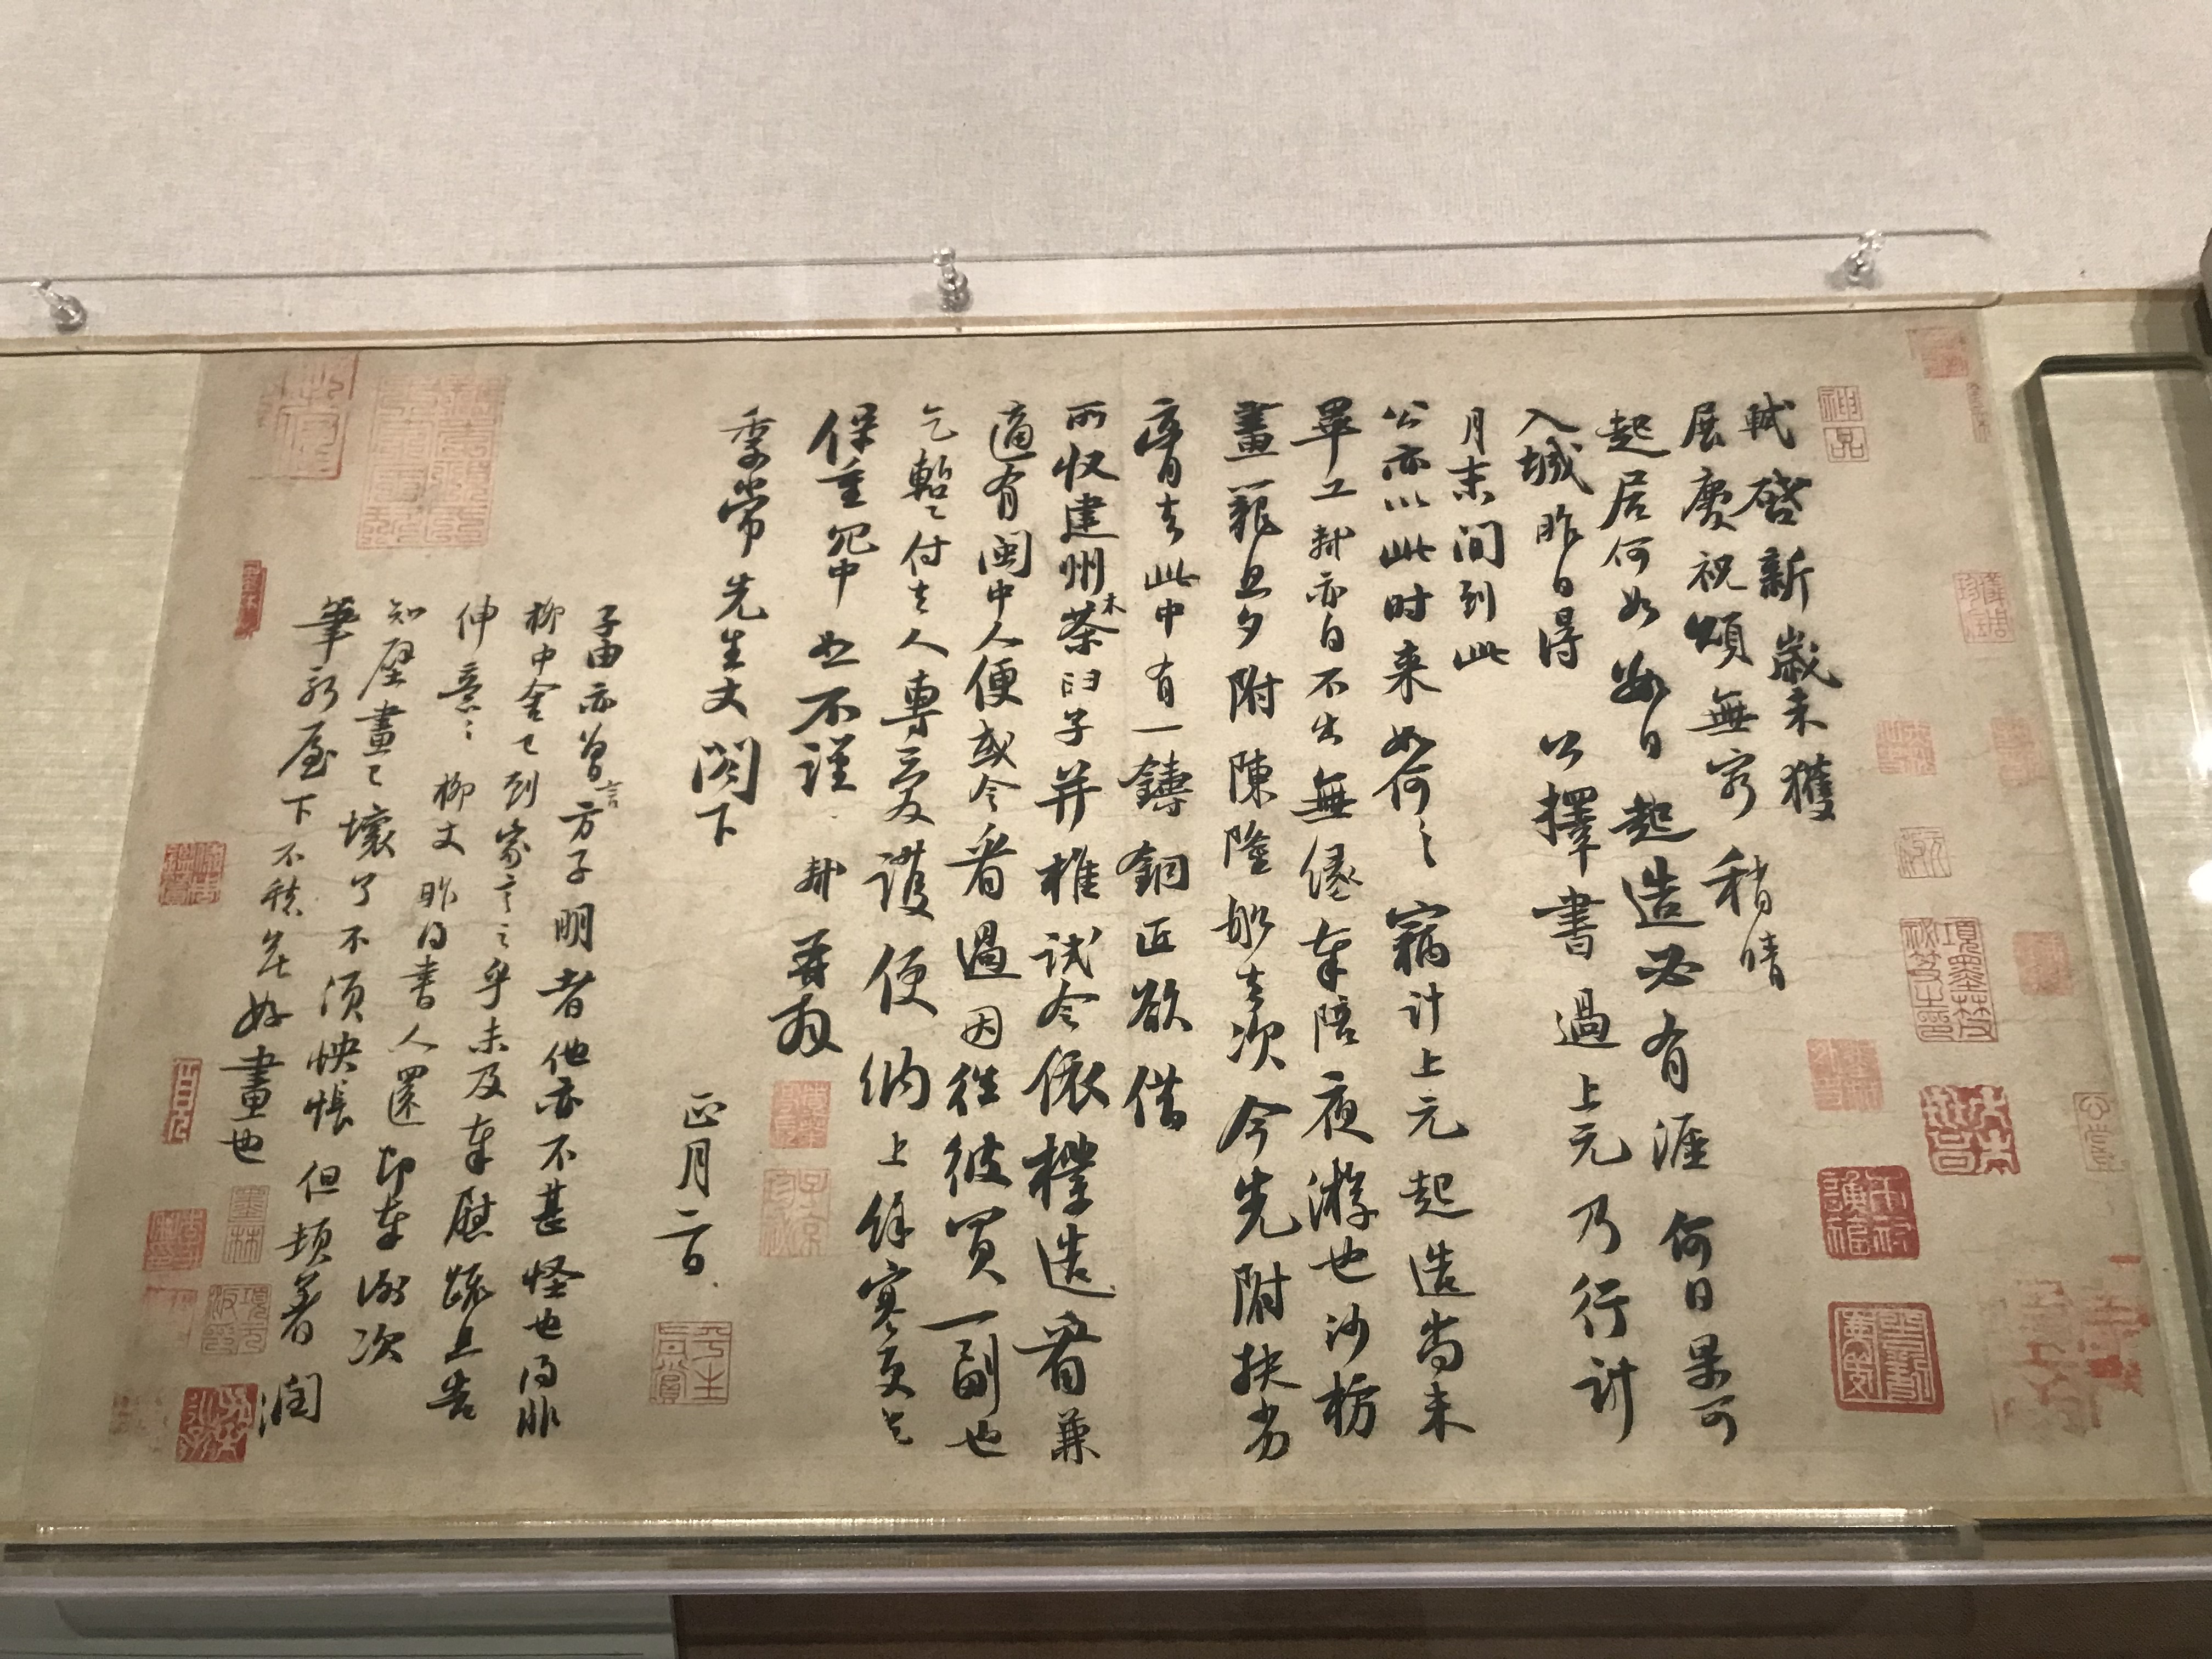 軾啓新歲未獲
展慶祝頌無窮稍晴
起居何如數日起造必有涯何日果可
入城昨日得公擇書過上元乃行計
月末間到此
公亦以此时来如何〻竊計上元起造尚未
畢工軾亦自不出無緣奉陪夜游也沙枋
畫籠旦夕附陳隆船去次今先附扶劣
膏去此中有一鑄銅匠欲借
所收建州木茶臼子并椎試令依樣造看兼
適有閩中人便或令看過因往彼買一副也
乞暫付去人專愛護便納上餘寒更乞
保重冗中恕不謹軾再拜
季常先生丈閣下
正月二日
子由亦曾言方子明者他亦不甚怪也得非
柳中舍已到家言之乎未及奉慰疏且告
伸意〻柳丈昨得書人還即奉謝次
知壁畫已壞了不須怏悵但頓著潤
筆新屋下不愁無好畫也
神品
項墨林父祕笈之印
平生真賞
墨林
項元汴印
子京珍祕